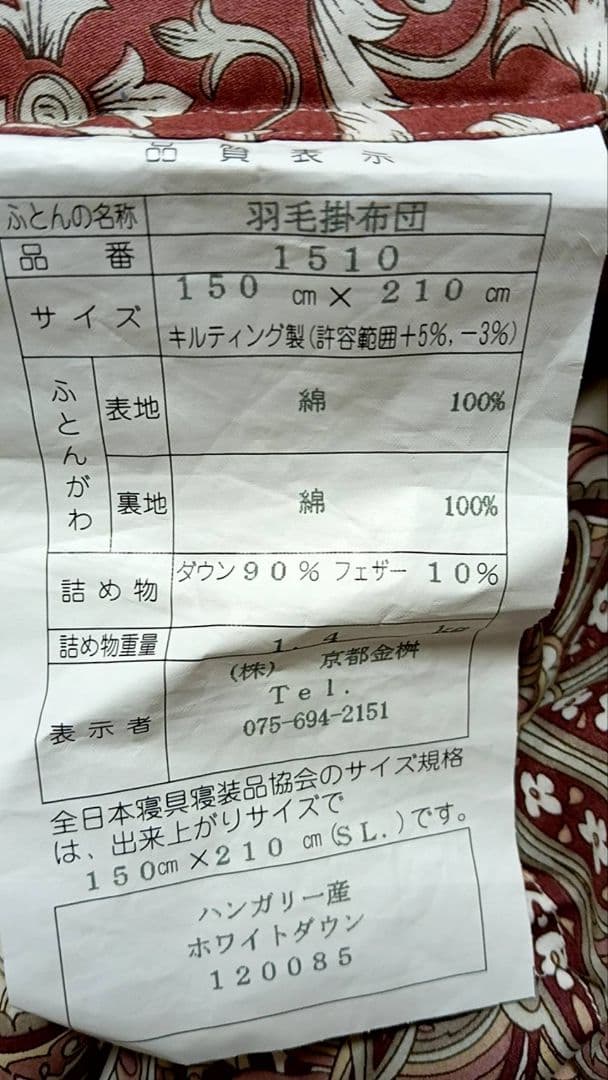 品質表示
ふとんの名称 羽毛掛布団
品番 1510
サイズ 150 cm × 210 cm
キルティング製(許容範囲+5%,-3%)
ふとんがわ 表地 綿 100%
裏地 綿 100%
詰め物 ダウン90% フェザー 10%
詰め物重量 1.4 kg
表示者 (株) 京都金桝
Tel.
075-694-2151
全日本寝具寝装品協会のサイズ規格
は、出来上がりサイズで
150cm×210 cm(SL.)です。
ハンガリー産
ホワイトダウン
120085